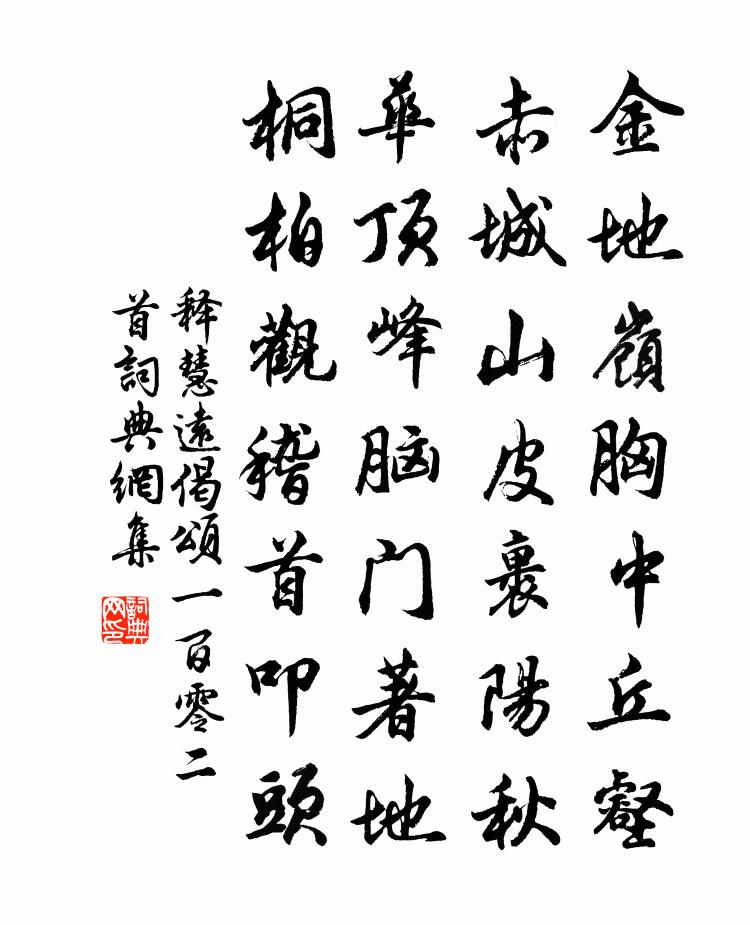 金地嶺胸中丘壑
赤城山皮裹陽秋
華頂峰脑门著地
桐柏觀稽首叩頭
释慧遠偈頌一百零二
首詞典網集
詞典网印